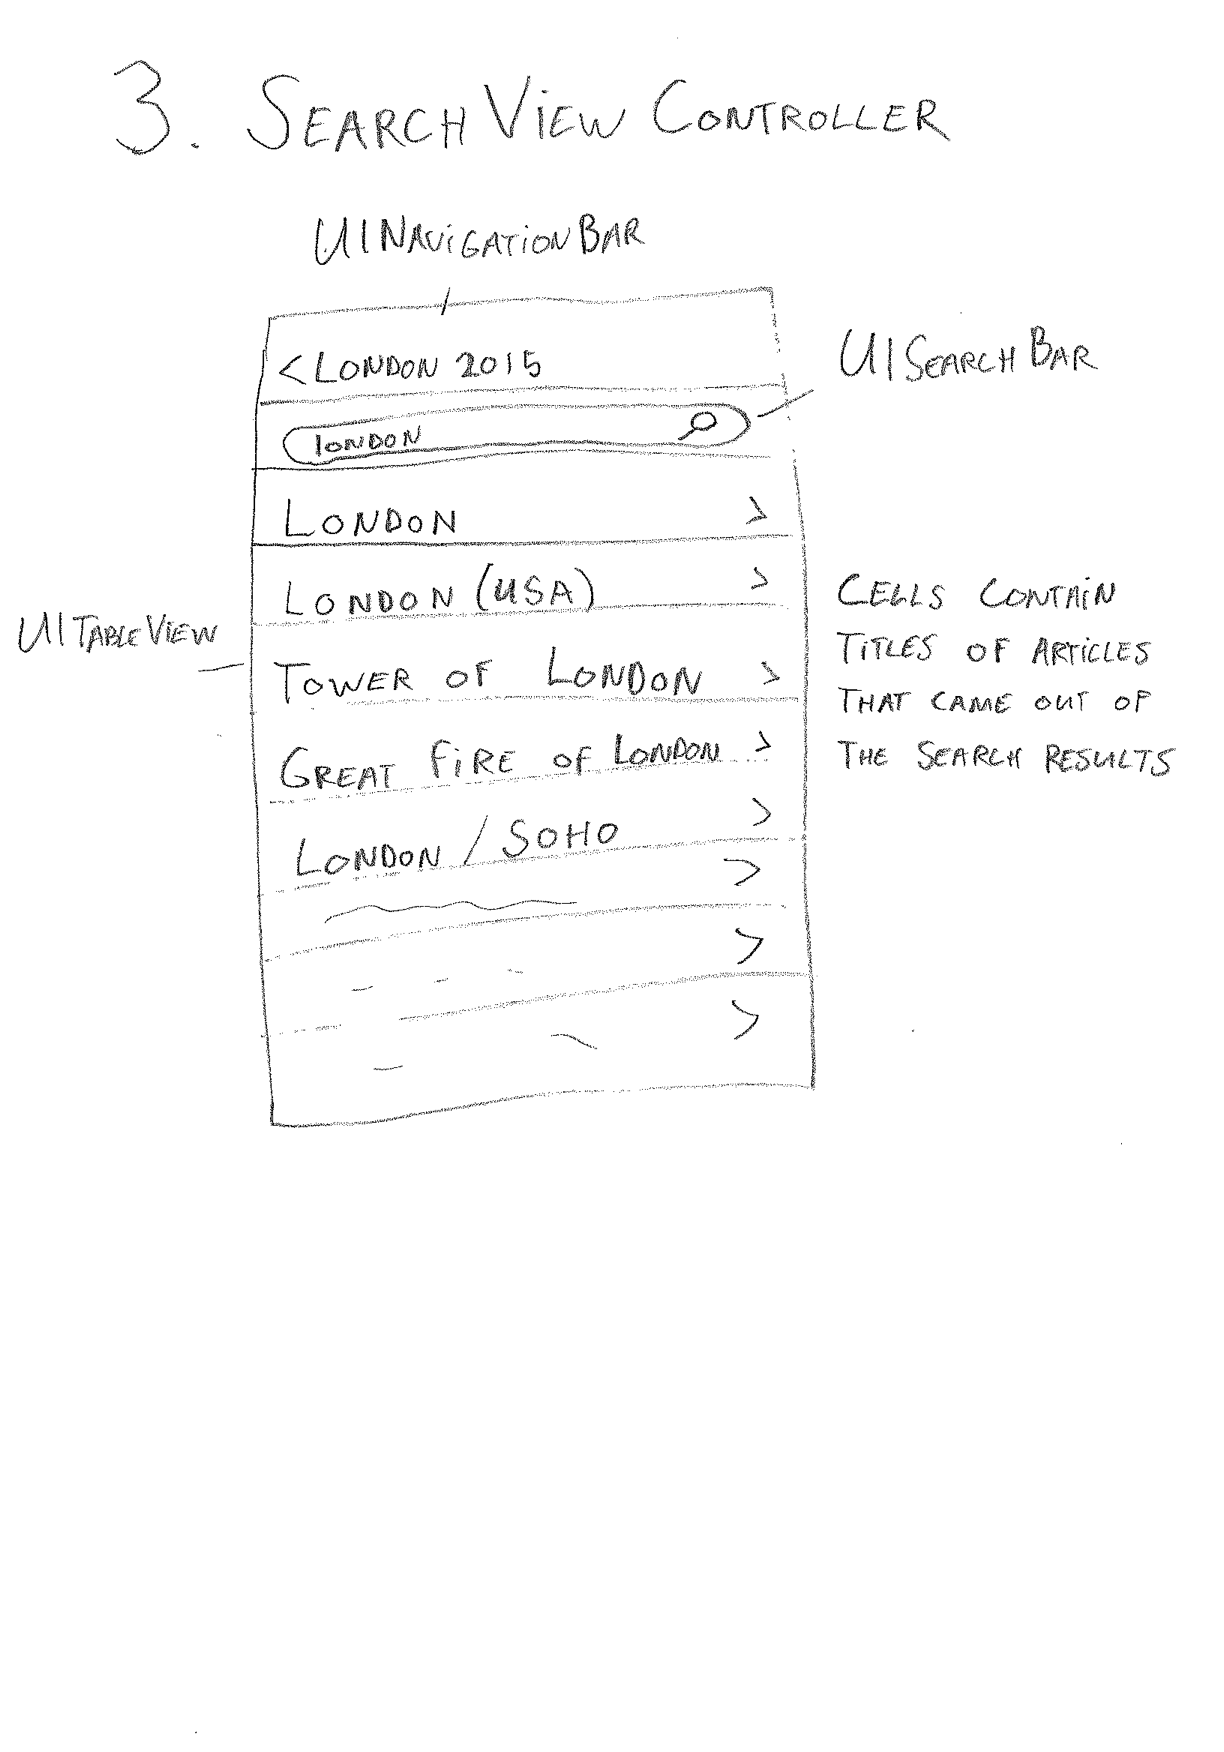 3. SEARCH VIEW CONTROLLER
UINAVIGATIONBAR
< LONDON 2015
UISEARCHBAR
LONDON
LONDON >
LONDON (USA) >
UITABLEVIEW
TOWER OF LONDON >
GREAT FIRE OF LONDON >
LONDON / SOHO >
>
>
>
CELLS CONTAIN
TITLES OF ARTICLES
THAT CAME OUT OF
THE SEARCH RESULTS